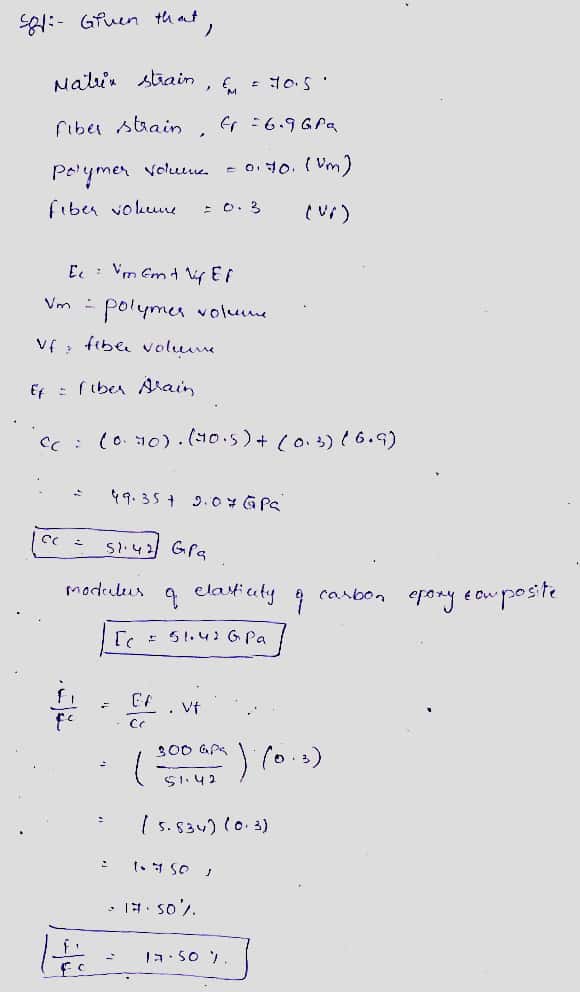 Sol:- Given that,
Matrix strain, εM = 70.5
fiber strain, Ef = 6.9 GPa
Polymer volume = 0.70. (Vm)
fiber volume = 0.3 (Vf)
Ec = Vm Em + Vf Ef
Vm = polymer volume
Vf = fiber volume
Ef = fiber strain
Ec = (0.70).(70.5) + (0.3)(6.9)
= 49.35 + 2.07 GPa
Ec = 51.42 GPa
modulus of elasticity of carbon epoxy composite
Ec = 51.42 GPa
f1/fc = Ef/Ec . Vf
= (300 GPa/51.42) (0.3)
= (5.834) (0.3)
= 1.750,
= 17.50%.
f1/Fc = 17.50 %.